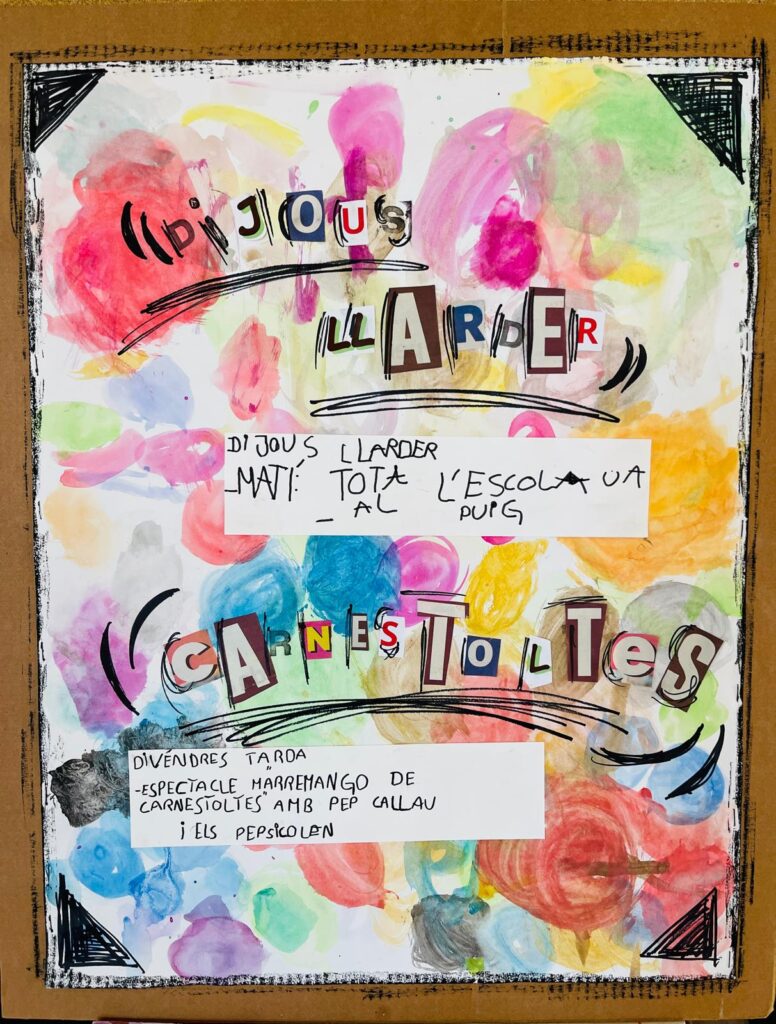 DiJOUS
LLARDER
DIJOUS LLARDER
-MATÍ: TOTA L'ESCOLA VA
AL PUIG
CARNESTOLTeS
DIVÉNDRES TARDA
-ESPECTACLE "MARREMANGO DE
CARNESTOLTES" AMB PEP CALLAU
i ELS PEPSICOLEN